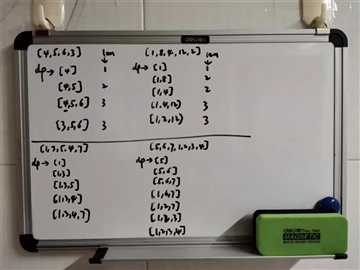 [4,5,6,3] len
dp → [4] 1
[4,5] 2
[4,5,6] 3
[3,5,6] 3
[1,8,4,12,2] len
dp → [1] 1
[1,8] 2
[1,4] 2
[1,4,12] 3
[1,2,12] 3
[1,3,5,4,7]
dp → [1]
[1,3]
[1,3,5]
[1,3,4]
[1,3,4,7]
[5,6,7,1,2,3,4]
dp → [5]
[5,6]
[5,6,7]
[1,6,7]
[1,2,7]
[1,2,3]
[1,2,3,4]
MAGNETIC